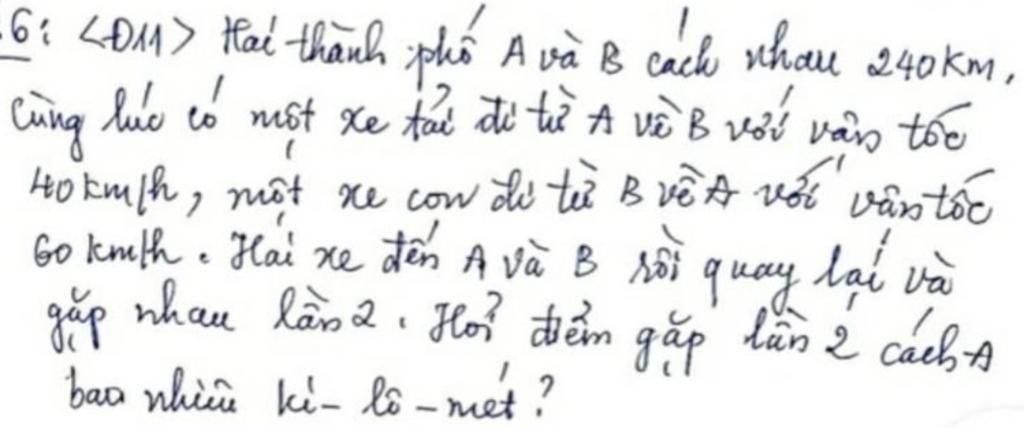 6: <Đ11> Hai thành phố A và B cách nhau 240km,
cùng lúc có một xe tải đi từ A về B với vận tốc
40km/h, một xe con đi từ B về A với vận tốc
60km/h. Hai xe đến A và B rồi quay lại và
gặp nhau lần 2. Hỏi điểm gặp lần 2 cách A
bao nhiêu ki-lô-mét?